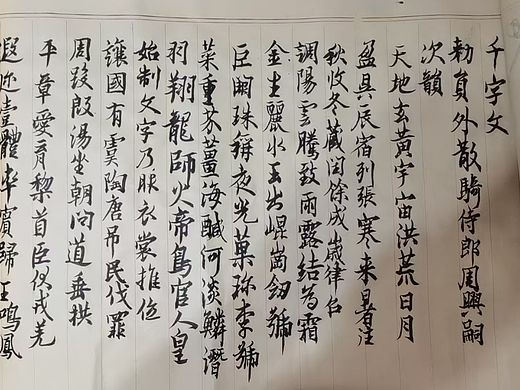 千字文
勅員外散騎侍郎周興嗣
次韻
天地玄黃宇宙洪荒日月
盈昃辰宿列張寒来暑往
秋收冬藏閏餘成歲律吕
調陽雲騰致雨露結為霜
金生麗水玉出崐崗劒號
巨闕珠稱夜光菓珎李
菜重芥薑海醎何淡鱗潛
羽翔龍師火帝鳥官人皇
始制文字乃服衣裳推位
讓國有虞陶唐吊民伐罪
周發殷湯坐朝問道垂拱
平章愛育黎首臣伏戎羌
遐迩壹體率賓歸王鳴鳳